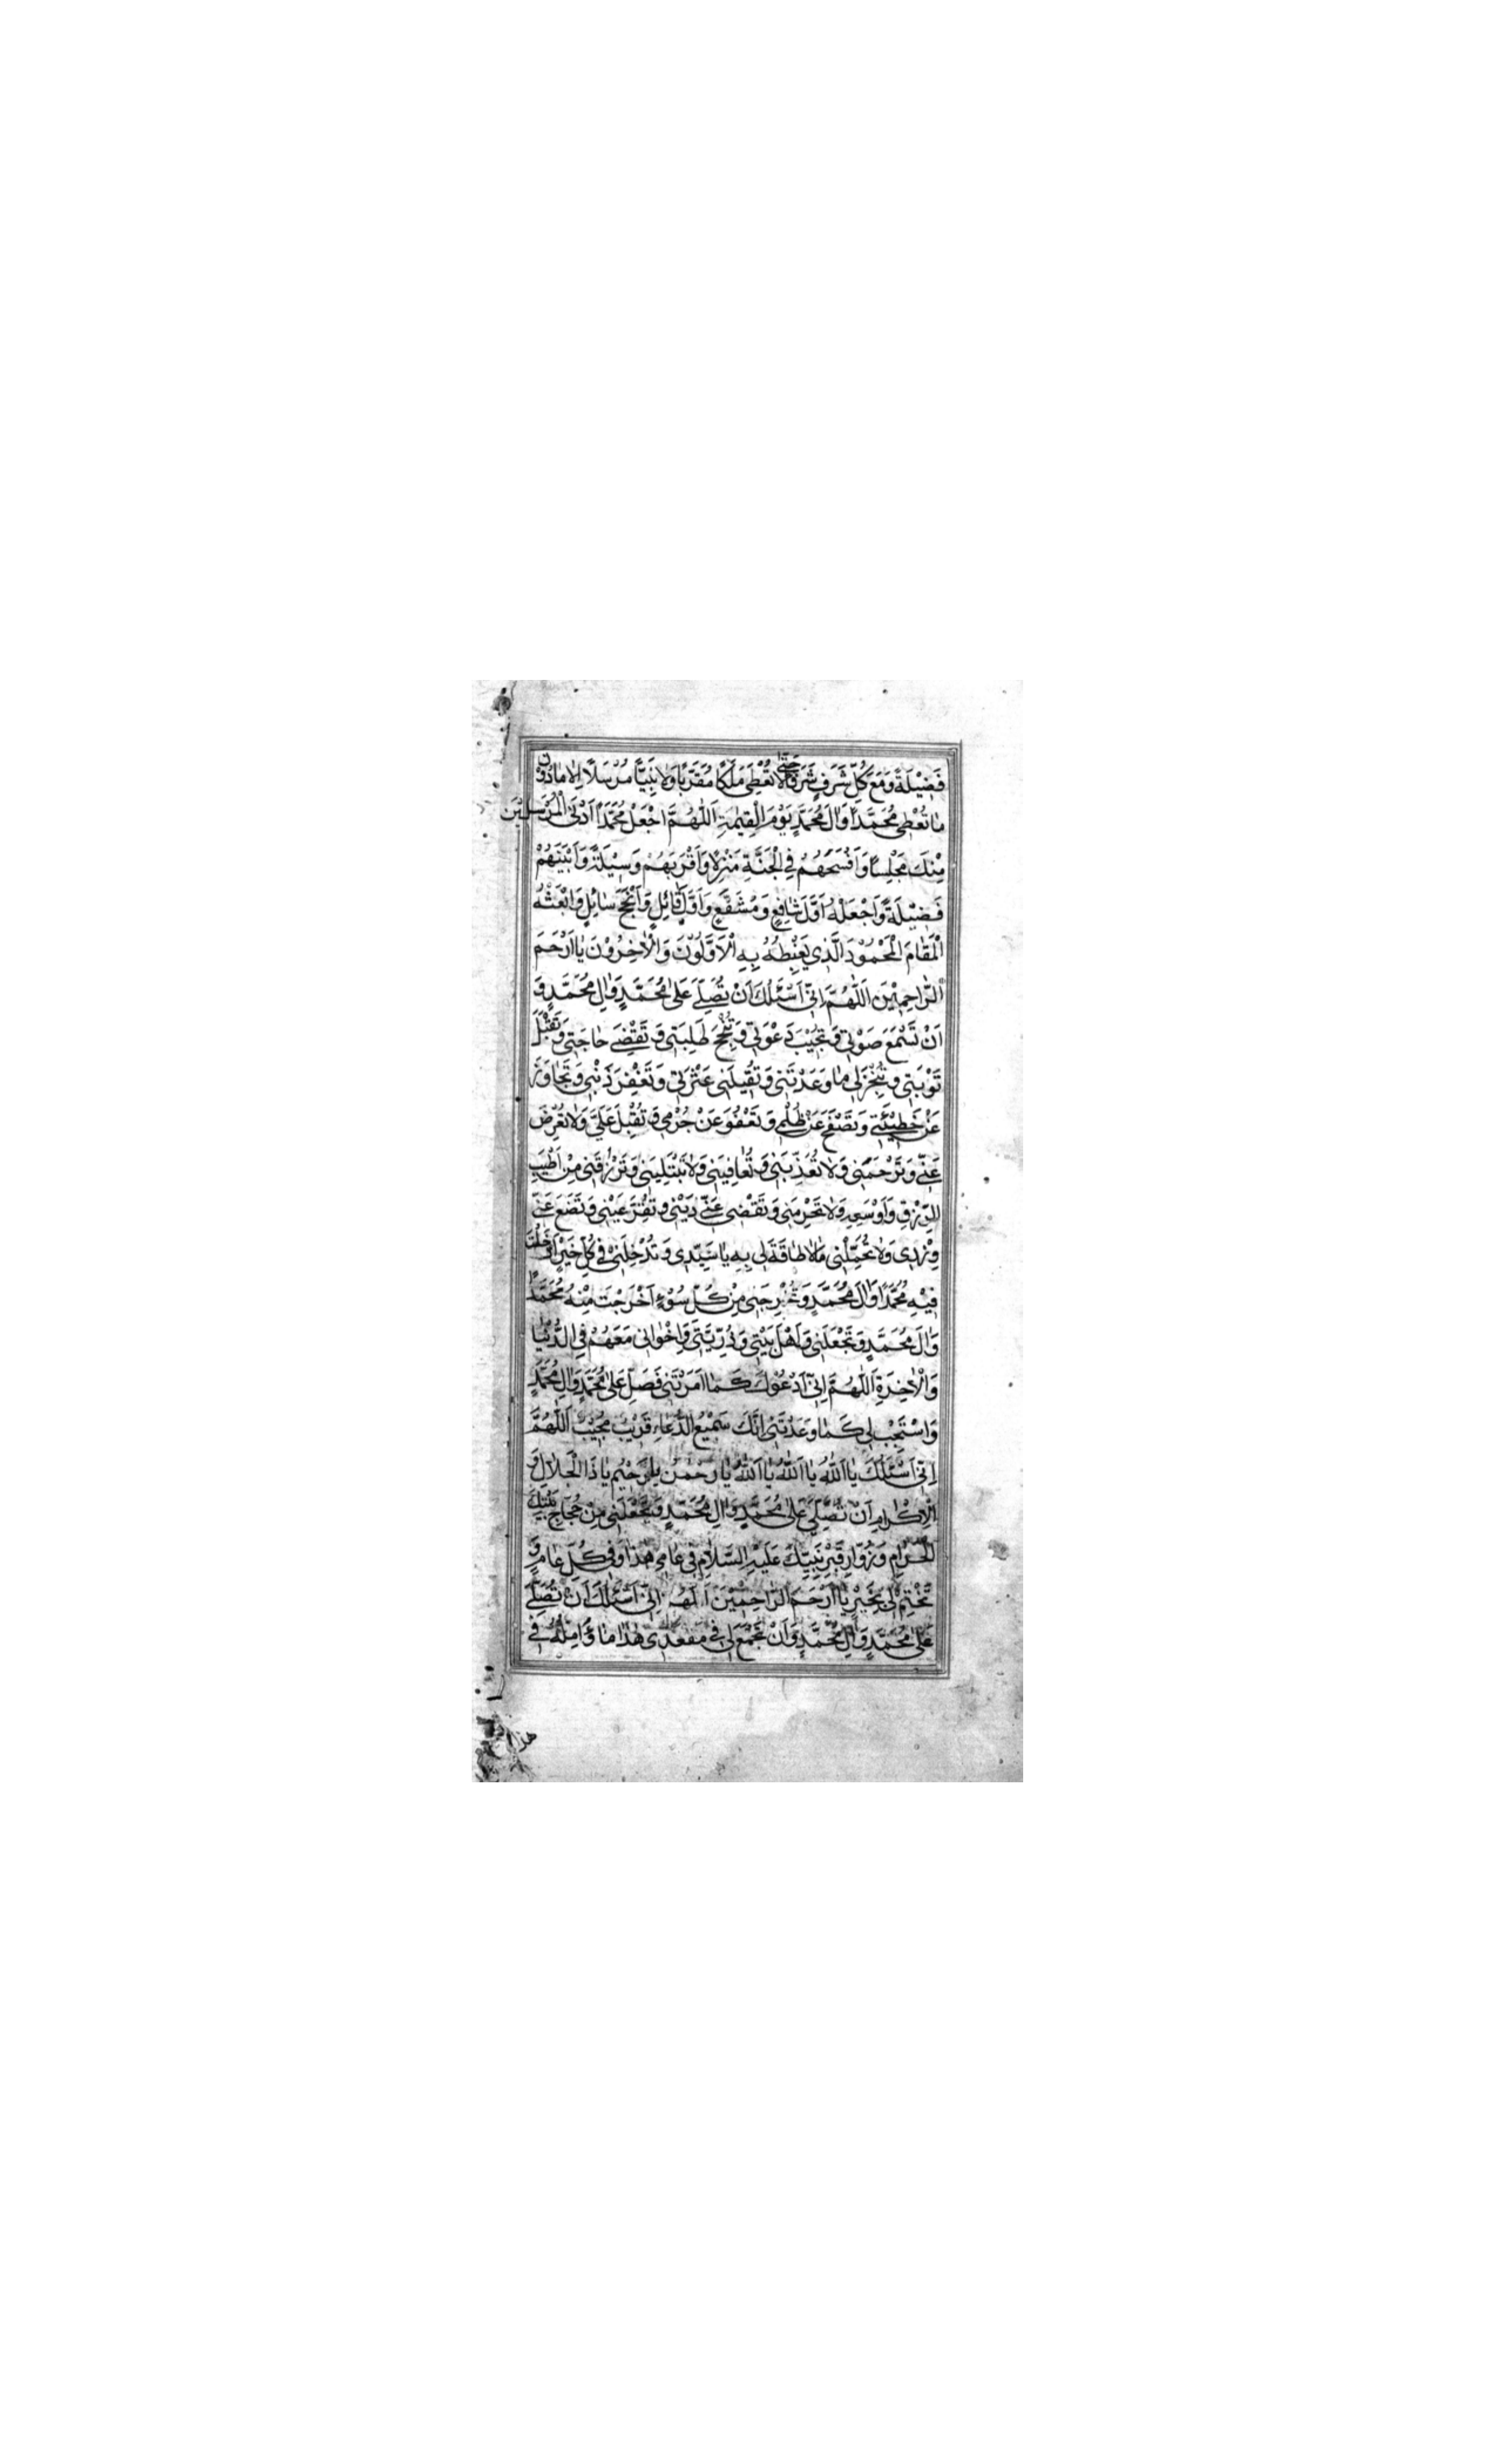 فَضِيْلَةً وَمَعَ كُلِّ شَرَفٍ شَرَفًا حَتّٰى لَا تُعْطِيَ مَلَكًا مُقَرَّبًا وَلَا نَبِيًّا مُرْسَلًا اِلَّا مَا دُوْنَ
مَا تُعْطِي مُحَمَّدًا وَاٰلَ مُحَمَّدٍ يَوْمَ الْقِيٰمَةِ اَللّٰهُمَّ اجْعَلْ مُحَمَّدًا اَدْنَى الْمُرْسَلِيْنَ
مِنْكَ مَجْلِسًا وَاَفْسَحَهُمْ فِي الْجَنَّةِ مَنْزِلًا وَاَقْرَبَهُمْ وَسِيْلَةً وَاَبْيَنَهُمْ
فَضِيْلَةً وَاجْعَلْهُ اَوَّلَ شَافِعٍ وَمُشَفَّعٍ وَاَوَّلَ قَائِلٍ وَاَنْجَحَ سَائِلٍ وَابْعَثْهُ
الْمَقَامَ الْمَحْمُوْدَ الَّذِي يَغْبِطُهُ بِهِ الْاَوَّلُوْنَ وَالْاٰخِرُوْنَ يَا اَرْحَمَ
الرَّاحِمِيْنَ اَللّٰهُمَّ اِنِّي اَسْئَلُكَ اَنْ تُصَلِّيَ عَلٰى مُحَمَّدٍ وَاٰلِ مُحَمَّدٍ وَ
اَنْ تَسْمَعَ صَوْتِي وَتُجِيْبَ دَعْوَتِي وَتُنْجِحَ طَلِبَتِي وَتَقْضِيَ حَاجَتِي وَتَقْبَلَ
تَوْبَتِي وَتُنْجِزَ لِي مَا وَعَدْتَنِي وَتُقِيلَنِي عَثْرَتِي وَتَغْفِرَ ذَنْبِي وَتَجَاوَزَ
عَنْ خَطِيْئَتِي وَتَصْفَحَ عَنْ ظُلْمِي وَتَعْفُوَ عَنْ جُرْمِي وَتُقْبِلَ عَلَيَّ وَلَا تُعْرِضَ
عَنِّي وَتَرْحَمَنِي وَلَا تُعَذِّبَنِي وَتُعَافِيَنِي وَلَا تَبْتَلِيَنِي وَتَرْزُقَنِي مِنْ اَطْيَبِ
الرِّزْقِ وَاَوْسَعِهِ وَلَا تَحْرِمَنِي وَتَقْضِيَ عَنِّي دَيْنِي وَتُقِرَّ عَيْنِي وَتَضَعَ عَنِّي
وِزْرِي وَلَا تُحَمِّلْنِي مَا لَا طَاقَةَ لِي بِهِ يَا سَيِّدِي وَتُدْخِلَنِي فِي كُلِّ خَيْرٍ اَدْخَلْتَ
فِيْهِ مُحَمَّدًا وَاٰلَ مُحَمَّدٍ وَتُخْرِجَنِي مِنْ كُلِّ سُوْءٍ اَخْرَجْتَ مِنْهُ مُحَمَّدًا
وَاٰلَ مُحَمَّدٍ وَتَجْعَلَنِي وَاَهْلَ بَيْتِي وَذُرِّيَّتِي وَاِخْوَانِي مَعَهُمْ فِي الدُّنْيَا
وَالْاٰخِرَةِ اَللّٰهُمَّ اِنِّي اَدْعُوْكَ كَمَا اَمَرْتَنِي فَصَلِّ عَلٰى مُحَمَّدٍ وَاٰلِ مُحَمَّدٍ
وَاسْتَجِبْ لِي كَمَا وَعَدْتَنِي اِنَّكَ سَمِيْعُ الدُّعَاءِ قَرِيْبٌ مُجِيْبٌ اَللّٰهُمَّ
اِنِّي اَسْئَلُكَ يَا اَللّٰهُ يَا اَللّٰهُ يَا اَللّٰهُ يَا رَحْمٰنُ يَا رَحِيْمُ يَا ذَا الْجَلَالِ وَ
الْاِكْرَامِ اَنْ تُصَلِّيَ عَلٰى مُحَمَّدٍ وَاٰلِ مُحَمَّدٍ وَتَجْعَلَنِي مِنْ حُجَّاجِ بَيْتِكَ
الْحَرَامِ وَزُوَّارِ قَبْرِ نَبِيِّكَ عَلَيْهِ السَّلَامُ فِي عَامِي هٰذَا وَفِي كُلِّ عَامٍ وَ
تَخْتِمَ لِي بِخَيْرٍ يَا اَرْحَمَ الرَّاحِمِيْنَ اَللّٰهُمَّ اِنِّي اَسْئَلُكَ اَنْ تُصَلِّيَ
عَلٰى مُحَمَّدٍ وَاٰلِ مُحَمَّدٍ وَاَنْ تَجْمَعَ لِي فِي مَقْعَدِي هٰذَا مَا اُؤَمِّلُهُ فِي
هذا